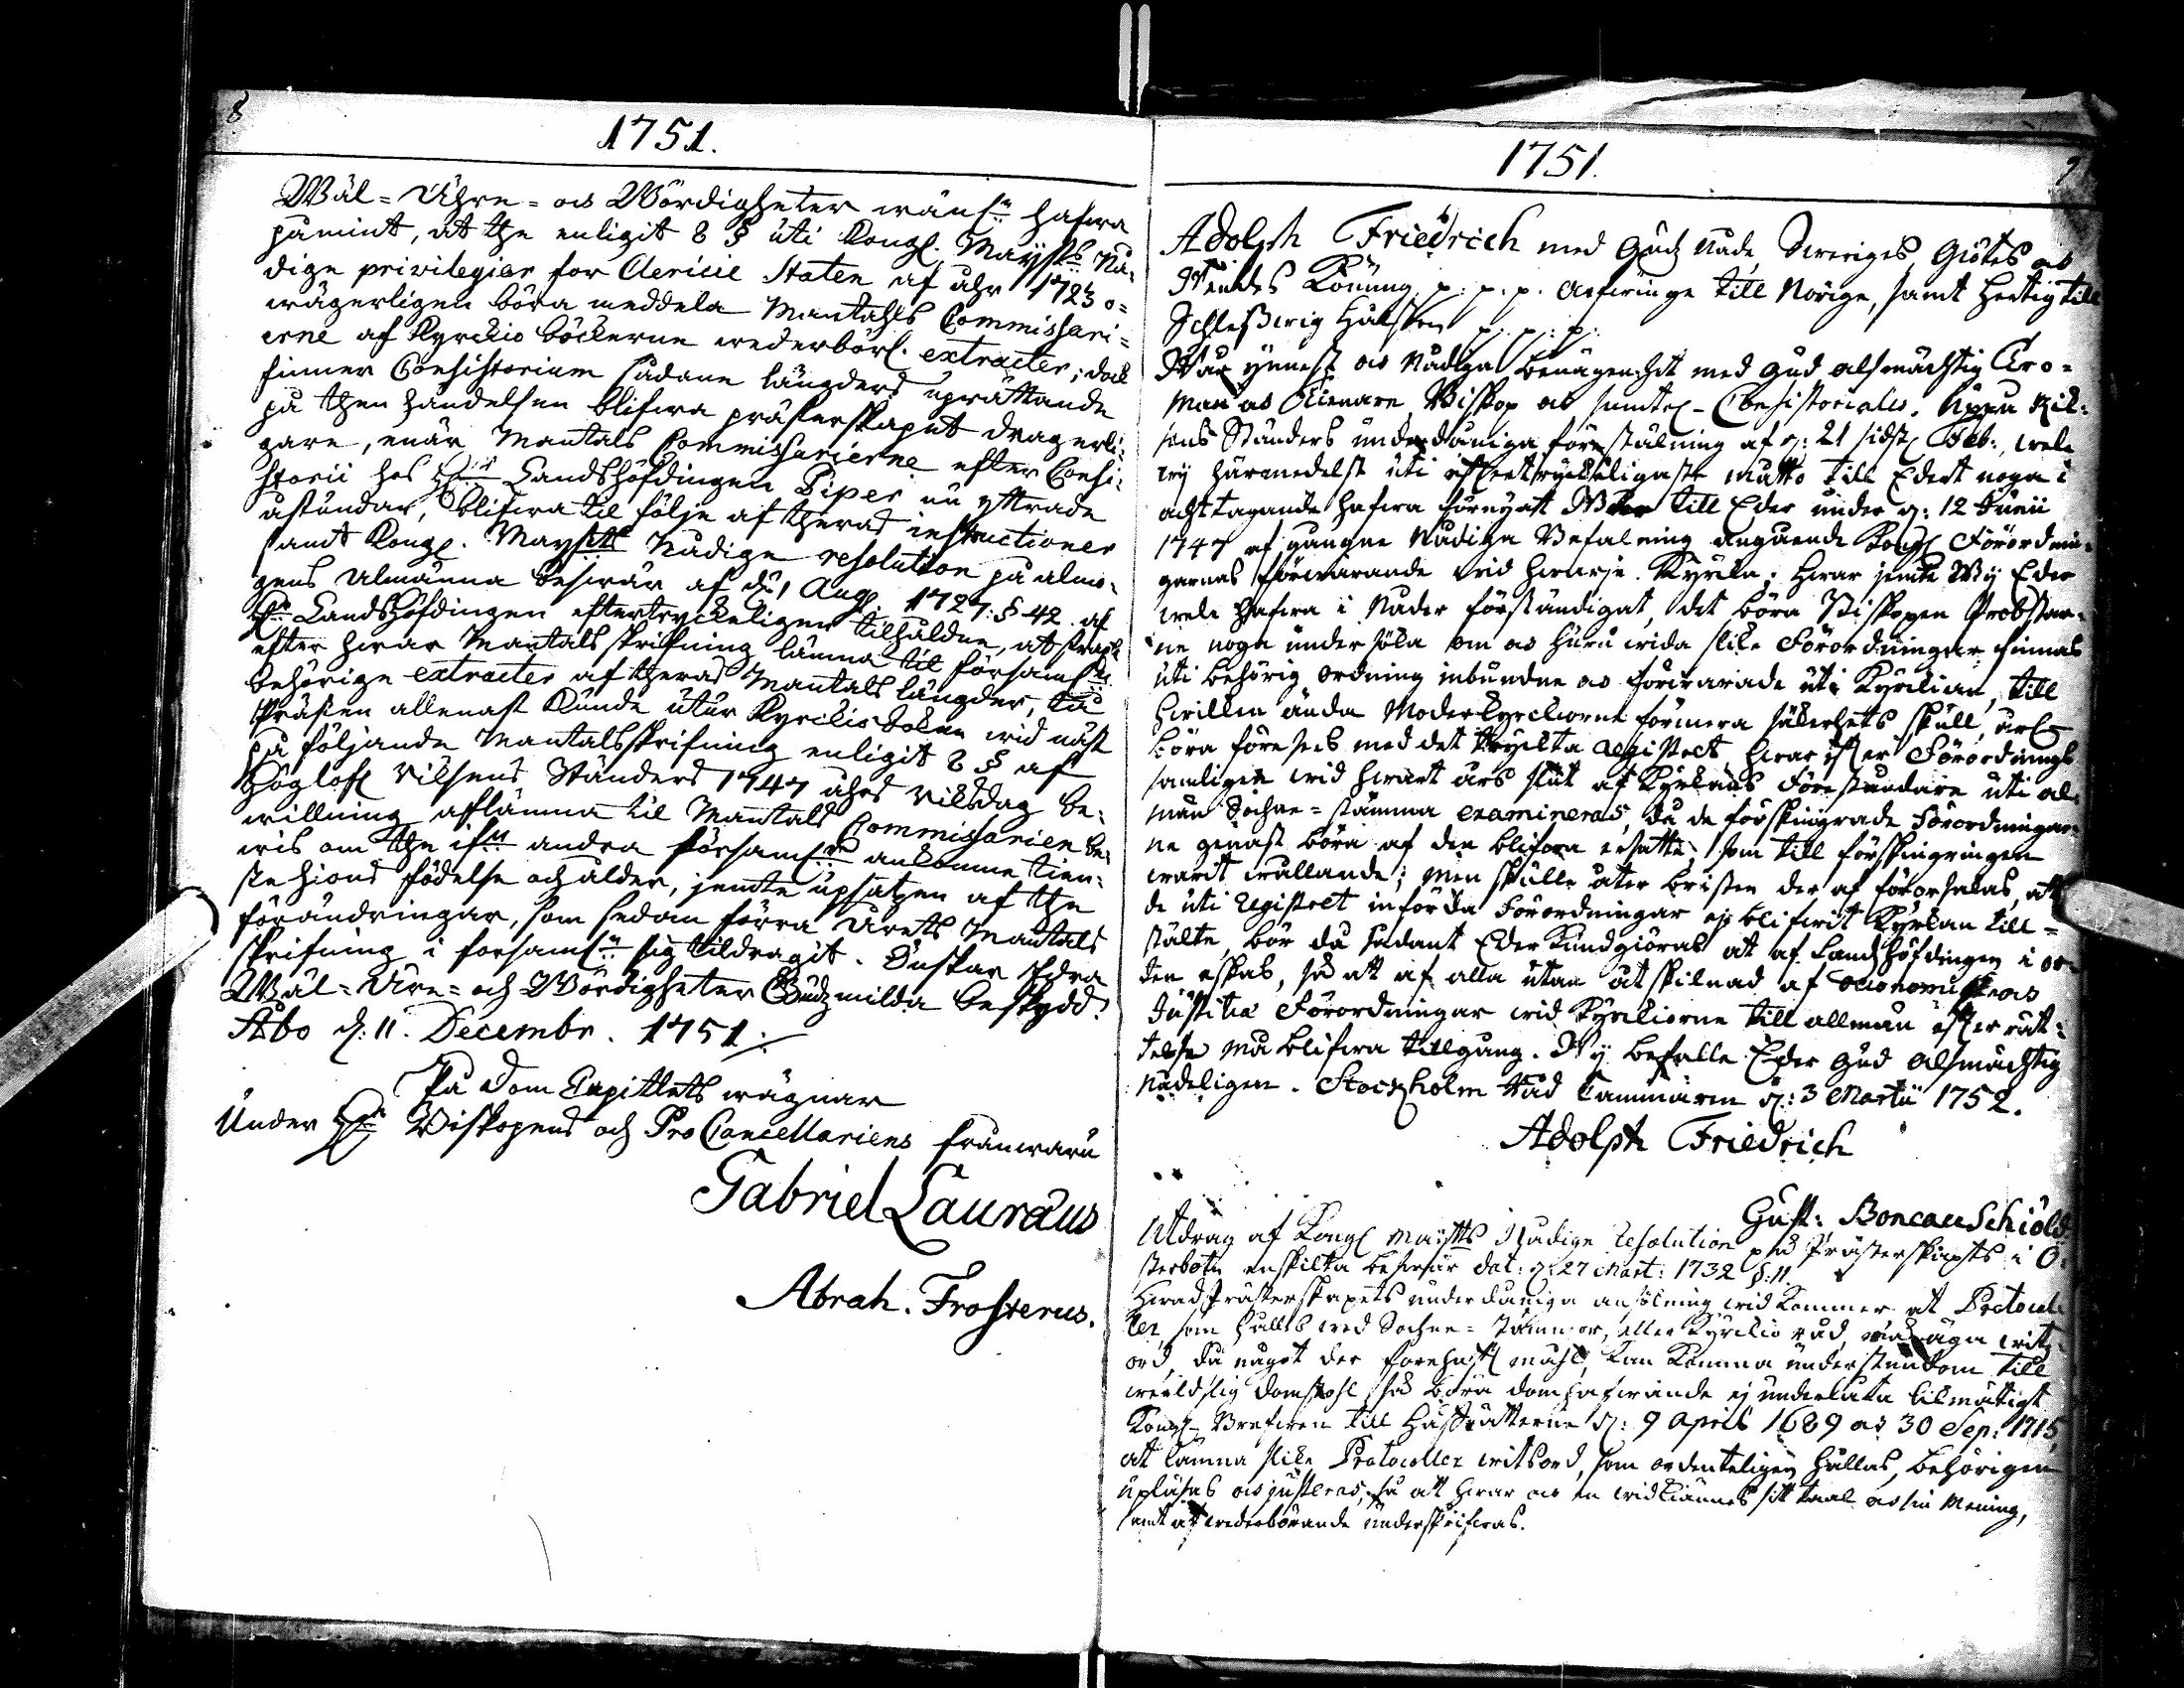 8
1751.
Wäl-Ähre- och Wördigheter wänl:n hafwa
påmint, at the enligit 8 § uti Kongl. Maysts Nå-
dige privilegier for Clericie Staten af åhr 1723 o-
wägerligen böra meddela Mantahls Commissari-
erne af Kyrckio böckerne wederbörl. extracter; dock
finner Consistorium sådane längders uprättande
på then händelsen blifwa prästerskapet dragerli-
gare, enär Mantals Commissarierne efter Consi-
storii hos Hr Landshöfdingen Piper nu yttrade
åstundan, blifwa til följe af theras instructioner
samt Kongl. Maysts Nådige resolution på almo-
gens Almänna beswär af d. 1 Aug. 1727. § 42. af
Hr Landshöfdingen eftertryckeligen tilhåldne, at strax
efter hwar Mantalsskrifning lämna til församl:ne
behörige extracter af theras Mantals längder, tå
Präsien allenast kunde utur Kyrckio boken wid näst
på följande Mantalsskrifning enligit 8 § af
Höglofl Riksens Ständers 1747 åhrs Riksdag be-
willning aflämna til Mantals Commissarien be-
wis om the ifrån andra församl:r ankomne tien-
ste hions födelse och ålder, jemte upsatzen af the
förändringar, som sedan förra Årets Mantals
skrifning i forsaml:n sig tildragit. Önskar Edra
Wäl-Äre- och Wördigheter Gudz milda beskydd.
Åbo d: 11. Decembr. 1751.
På Dom Capitlets wägnar
Under Hr Biskopens och ProCancellariens frånwaru
Gabriel Lauræus
Abrah. Frosterus.
1751.
9
Adolph Friedrich med Gudz Nåde, Sweriges, Giötes och
Wendes Konung, p. p. p. Arfwinge till Norige, samt Hertig till
Schleßwig Hålsten p. p. p.
Wår ynnest och Nådiga benägenhet med Gud alsmächtig Tro-
man och Tienare, Biskop och samtel. Consistoriales. Uppå Rik-
sens Ständers underdåniga förestälning af d: 21 sidstl Feb:, wele
wij härmedelst uti eftertryckeligaste måtto till Edert noga i
acht tagande hafwa förnyat Wår till Eder under d: 12 Junii
1747 af gångne Nådiga Befalning angående Kongl Förordnin-
garnas förwarande wid hwarje Kyrcka; hwar jemte Wij Eder
wele hafwa i Nåder förständigat, det böra Biskopen Probstar-
ne noga undersöka om och huru wida slike Förordningar finnas
uti behörig ordning inbundne och förwarade uti Kyrckian, till
hwilken ända Moderkyrckiorne förmera säkerhets skull, årl.
böra föreses med det tryckta Registret, hwar efter Förordnings
samlingen wid hwart års slut af Kyrkans Föreståndare uti al-
män Sochne-stämma examineras, då de förskingrade Förordningar-
ne genast böra af den blifwa ersatte, som till förskingringen
warit wållande; men skulle åter bristen der af förorsakas, att
de uti Registret införda Förordningar ej blifwit Kyrkan till-
stälte, bör då sådant Eder kundgiöras at af Landshöfdingen i or-
ten eskas, så att af alla utan åtskilnad af Oeconomiske och
Justitiæ Förordningar wid Kyrckiorne till allmän efterrät-
telse må blifwa tillgång. Wij befalle Eder Gud Alsmächtig
Nådeligen. Stockholm Råd Cammaren d: 3 Martii 1752.
Adolph Friedrich
Gust: Boneauschiöld
Utdrag af Kongl Maytts Nådige Resolution på Prästerskapets i Ö-
sterbotn enskilta beswär dat: d: 27 Mart: 1732 §: 11.
Hwad Prästerskapets underdåniga ansökning wid kommer at Protocol-
ler, som hålles wed Sochne-Stämmor, eller Kyrckio råd, må äga wits-
ord, då något der förehaft mahl, kan komma understundom till
werldslig domstohl, så böra domhafwande ej underlåta likmätigt
Kongl Brefwen till Håfrätterne d: 9 April 1689 och 30 Sep: 1715,
at lämna slike Protocoller witsord, som ordenteligen hållas, behörigen
upläsas och justeras, så att hwar och en widkännes sitt taal och sin Mening,
samt af wederbörande underskrifwas.